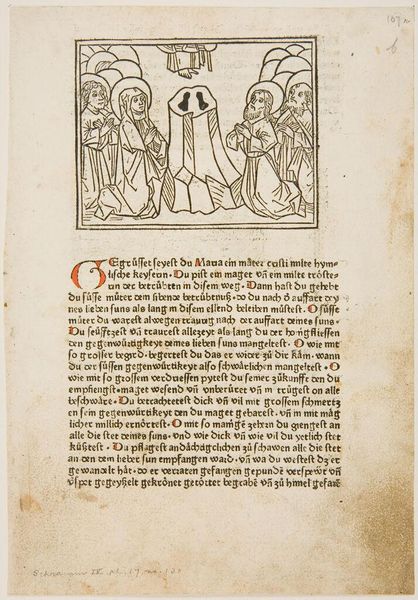 107
b
GEgrüsset seyest du Maria ein můter cristi milte hym-
lische keyserin · Du pist ein maget vñ ein milte tröste-
rin der betrübten in disem weg · Dann hast du gehebt
du süsse můter dem sibende betrübtnuß · do du nach d̉ auffart dey
nes lieben suns als lang in disem ellend beleiben můstest · O süsse
můter du warest alwegen traurig nach der auffart deines suns ·
Du seüfftzest vñ trauɾest allezeyt als lang du der honigfliessen
den gegenwürtigkeyt deines lieben suns mangeltest · O wie mit
so grosser begird · begertest du das er wider zů dir käm · wann
du der süssen gegenwürtikeyt also schwärlichen mangeltest · O
wie mit so grossem verdriessen pytest du seiner zůkunfft den du
empfiengst · maget wesend vñ vnberüret vñ in trůgest on alle
beschwäre · Du betrachtetest dick vñ vil mit grossem schmertz
en sein gegenwürtikeyt den du maget gebarest · vñ in mit mäg
licher milich ernörtest · O mit so manigen zehern du giengest an
alle die stet deines suns · vnd wie dick vñ wie vil du yetlich stet
küßtest · Du pflagest andächtigklichen zů schawen alle die stet
an den dein lieber sun empfangen ward · vñ wa du westest dz er
gewandlt hät · do er verraten gefangen gepunden verspewet vñ
v̉spot gegeyßelt gekrönet getöttet begrabẽ vñ zů himel gefarẽ
Schramm IV. pl. 17 no. 120